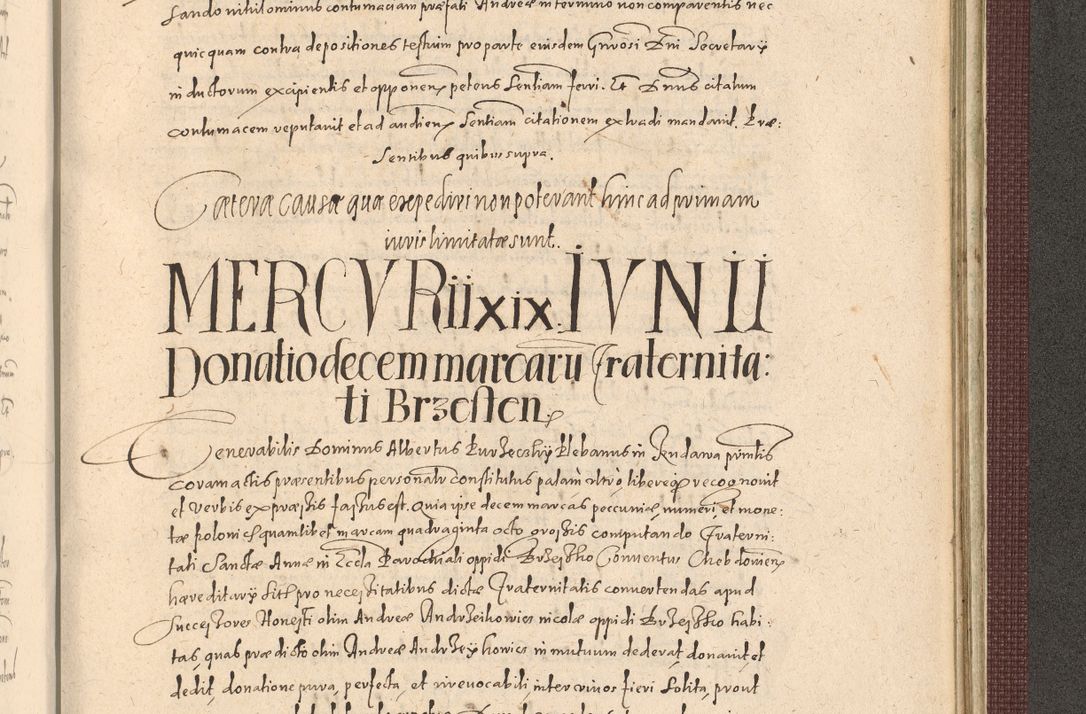 sando nihilominus contumaciam præfati Andreæ in termino non comparentis nec
quicquam contra depositiones testium pro parte eiusdem Gnrosi Dni Secretary
inductorum excipientis et opponen petens sentiam ferri. Et Dnus citatum
contumacem reputavit et ad audien sentiam citationem extradi mandavit. Præ:
sentibus quibus supra.
Cæteræ causæ quæ expediri non poterant hinc ad primam
iuris limitatæ sunt.
MERCVRii xix. IVNII
Donatio decem marcarũ fraternita:
ti Brzesten
Venerabilis Dominus Albertus Kurzeczky Plebanus in Jendawa pnntis
coram actis præsentibus personalr constitutus palam ultro libereq recognovit
et verbis expræssis fassus est. Quia ipse decem marcas peccuniæ numeri, et mone:
tæ poloni quamlibet marcam quadraginta octo grossis computando fraterni:
tati Sanctæ Annæ in Eccla Parochiali oppidi Brzesko Conventus
hæreditary pro necessitatibus dictæ Fraternitatis convertendas apud
successores Honesti olim Andreæ Andrzeikowicz incolæ oppidi Brzesko habi:
tas, quas prædicto olim Andreæ Andrzeykowicz in mutuum dederat, donavit et
dedit, donatione pura, perfecta, et irrevocabili inter vivos fieri solita, prout